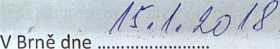 V Brně dne 15.1.2018